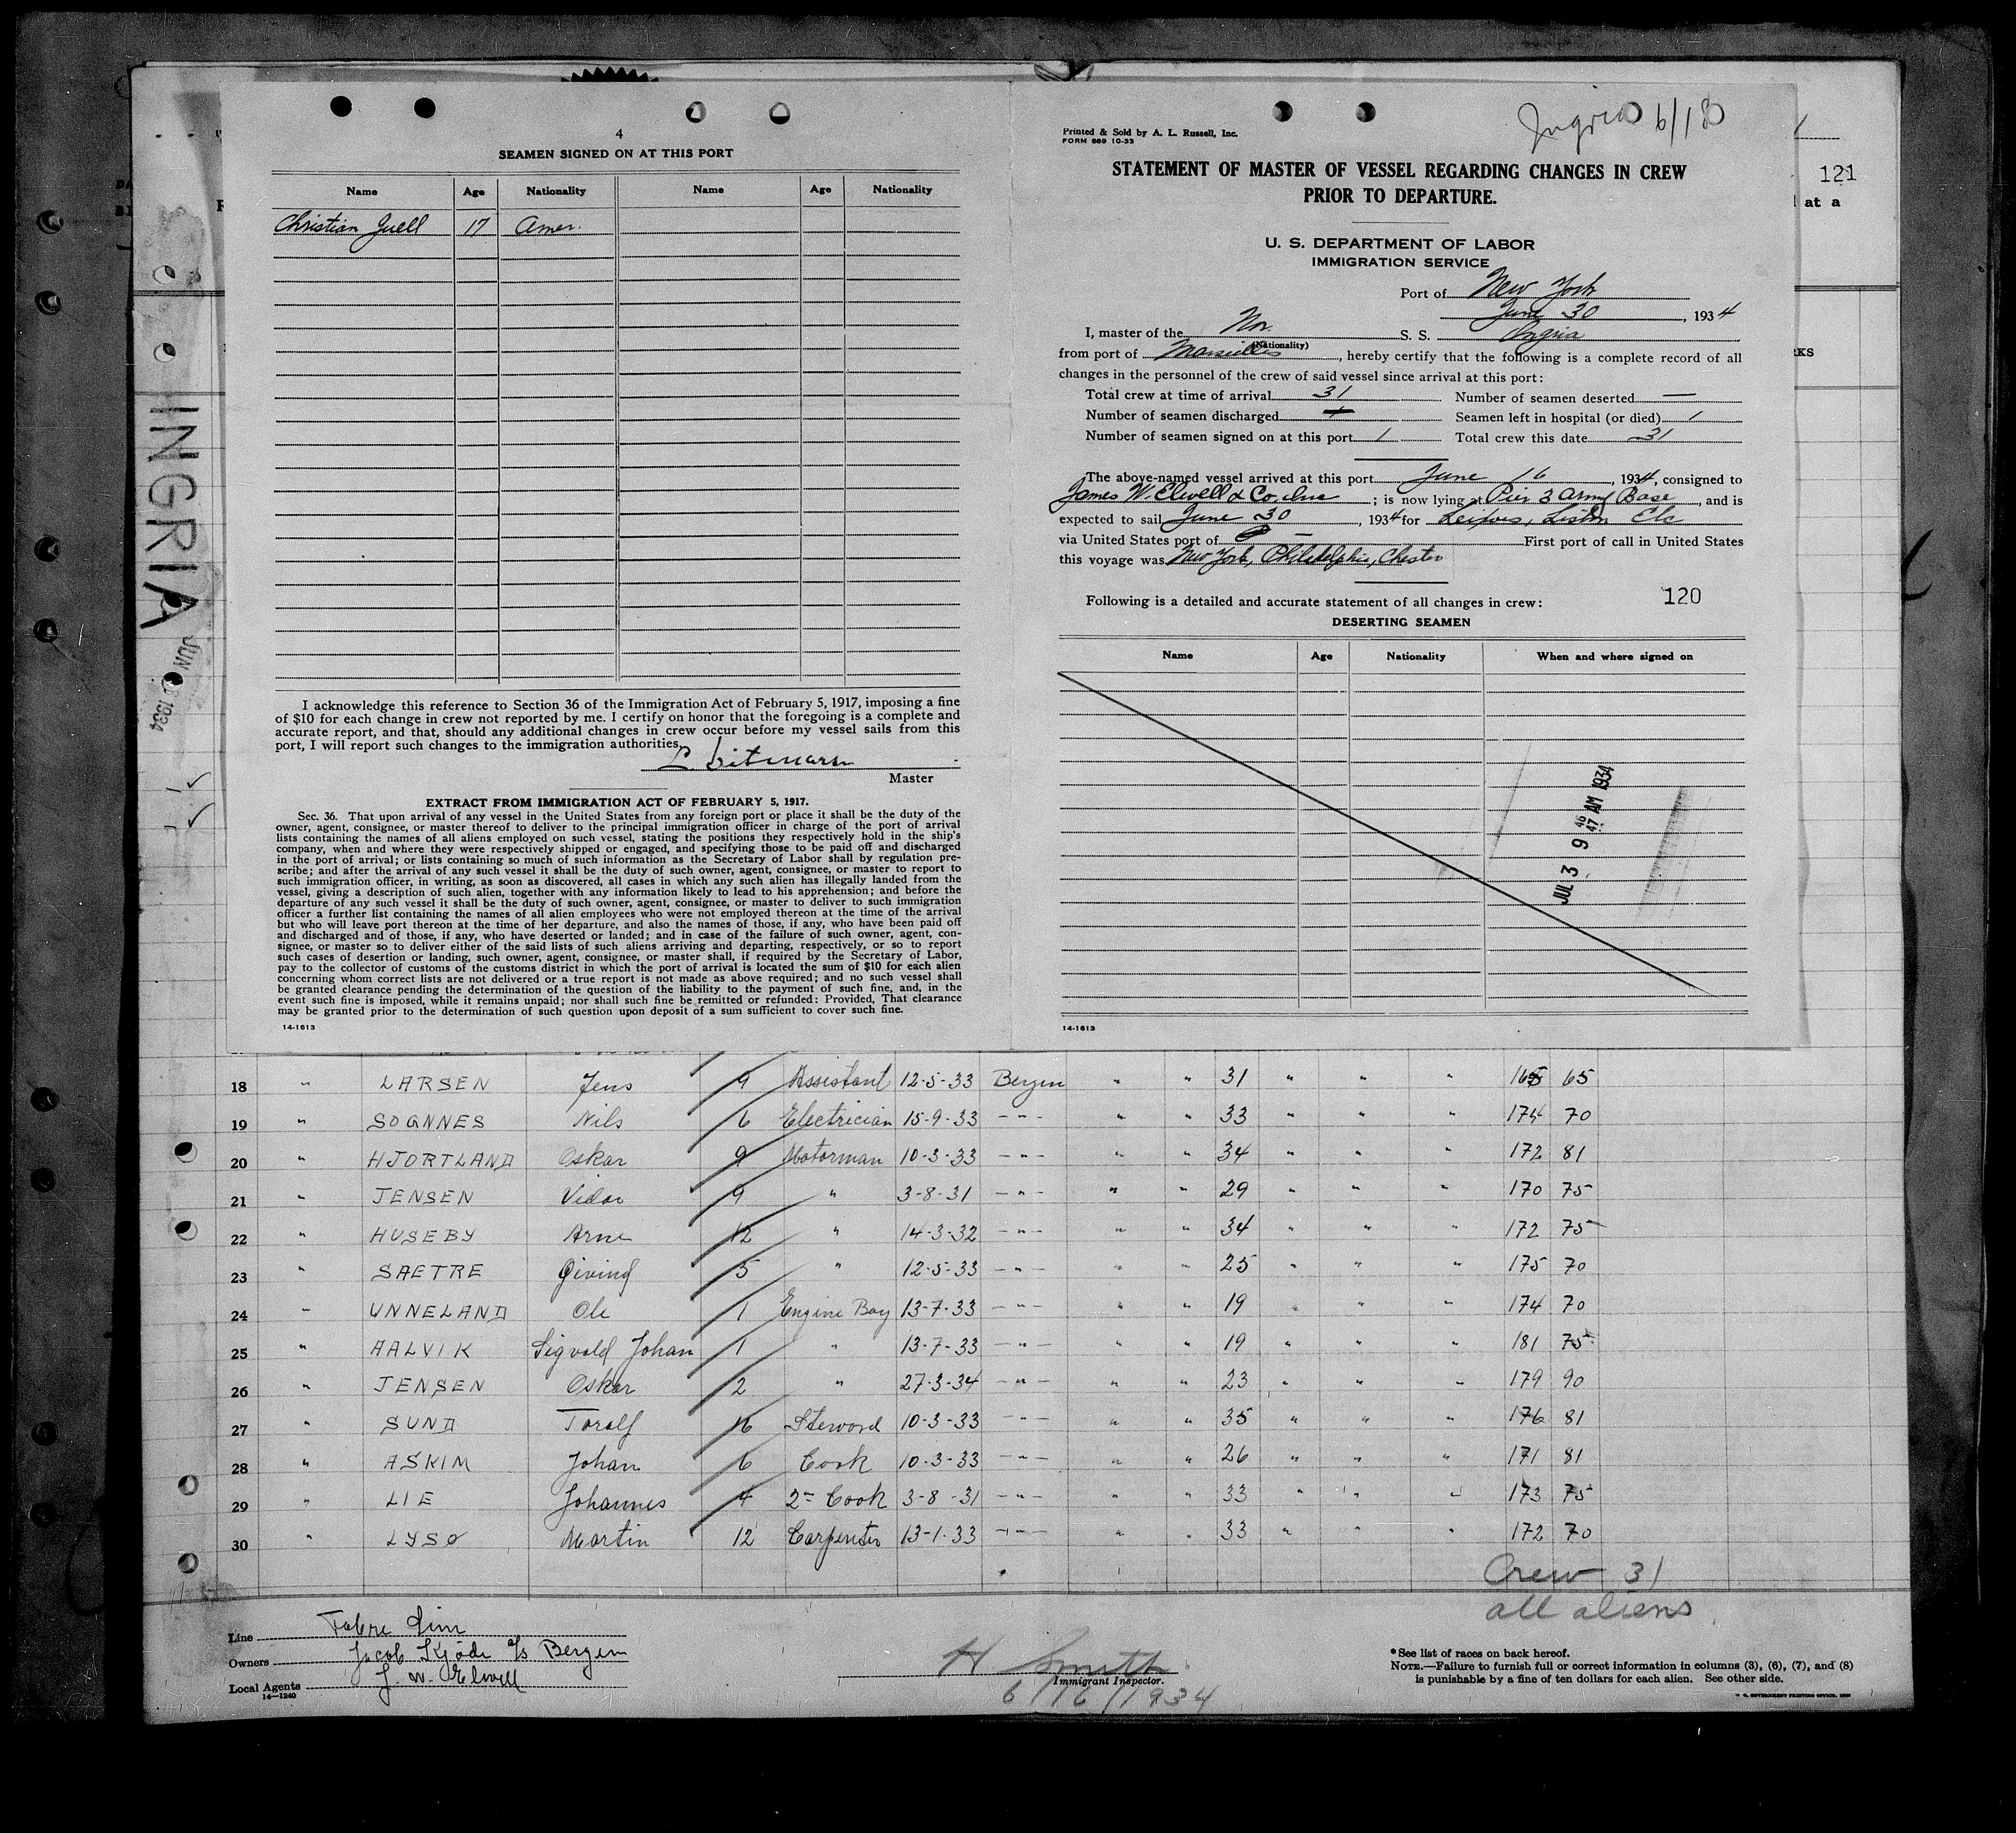 4
SEAMEN SIGNED ON AT THIS PORT
Name Age Nationality Name Age Nationality
Christian Juell 17 Amer.
I acknowledge this reference to Section 36 of the Immigration Act of February 5, 1917, imposing a fine
of $10 for each change in crew not reported by me. I certify on honor that the foregoing is a complete and
accurate report, and that, should any additional changes in crew occur before my vessel sails from this
port, I will report such changes to the immigration authorities.
Master
EXTRACT FROM IMMIGRATION ACT OF FEBRUARY 5, 1917.
Sec. 36. That upon arrival of any vessel in the United States from any foreign port or place it shall be the duty of the
owner, agent, consignee, or master thereof to deliver to the principal immigration officer in charge of the port of arrival
lists containing the names of all aliens employed on such vessel, stating the positions they respectively hold in the ship's
company, when and where they were respectively shipped or engaged, and specifying those to be paid off and discharged
in the port of arrival; or lists containing so much of such information as the Secretary of Labor shall by regulation pre-
scribe; and after the arrival of any such vessel it shall be the duty of such owner, agent, consignee, or master to report to
such immigration officer, in writing, as soon as discovered, all cases in which any such alien has illegally landed from the
vessel, giving a description of such alien, together with any information likely to lead to his apprehension; and before the
departure of any such vessel it shall be the duty of such owner, agent, consignee, or master to deliver to such immigration
officer a further list containing the names of all alien employees who were not employed thereon at the time of the arrival
but who will leave port thereon at the time of her departure, and also the names of those, if any, who have been paid off
and discharged and of those, if any, who have deserted or landed; and in case of the failure of such owner, agent, con-
signee, or master so to deliver either of the said lists of such aliens arriving and departing, respectively, or so to report
such cases of desertion or landing, such owner, agent, consignee, or master shall, if required by the Secretary of Labor,
pay to the collector of customs of the customs district in which the port of arrival is located the sum of $10 for each alien
concerning whom correct lists are not delivered or a true report is not made as above required; and no such vessel shall
be granted clearance pending the determination of the question of the liability to the payment of such fine, and, in the
event such fine is imposed, while it remains unpaid; nor shall such fine be remitted or refunded: Provided, That clearance
may be granted prior to the determination of such question upon deposit of a sum sufficient to cover such fine.
14-1613
Ingria 6/13
Printed & Sold by A. L. Russell, Inc.
FORM 689 10-33
STATEMENT OF MASTER OF VESSEL REGARDING CHANGES IN CREW
PRIOR TO DEPARTURE.
U. S. DEPARTMENT OF LABOR
IMMIGRATION SERVICE
Port of New York
June 30, 1934
I, master of the Nor. S. S. Ingria
(Nationality)
from port of Marseilles, hereby certify that the following is a complete record of all
changes in the personnel of the crew of said vessel since arrival at this port:
Total crew at time of arrival 31 Number of seamen deserted —
Number of seamen discharged Seamen left in hospital (or died) 1
Number of seamen signed on at this port 1 Total crew this date 31
The above-named vessel arrived at this port June 16, 1934, consigned to
James W. Elwell & Co. Inc; is now lying at Pier 3 Army Base, and is
expected to sail June 30, 1934 for Leixoes, Lisbon Etc
via United States port of — First port of call in United States
this voyage was New York, Philadelphia, Chester
Following is a detailed and accurate statement of all changes in crew: 120
DESERTING SEAMEN
Name Age Nationality When and where signed on
JUL 3 9 46 47 AM 1934
14-1613
121
at a
KS
INGRIA
JUN 1934
18 " LARSEN Jens 9 Assistant 12-5-33 Bergen " " 31 " " " 165 65
19 " SOGNNES Nils 6 Electrician 15-9-33 -"- " " 33 " " " 174 70
20 " HJORTLAND Oskar 9 Motorman 10-3-33 -"- " " 34 " " " 172 81
21 " JENSEN Vidar 9 " 3-8-31 -"- " " 29 " " " 170 75
22 " HUSEBY Arne 12 " 14-3-32 -"- " " 34 " " " 172 75
23 " SAETRE Øivind 5 " 12-5-33 -"- " " 25 " " " 175 70
24 " UNNELAND Ole 1 Engine Boy 13-7-33 -"- " " 19 " " " 174 70
25 " AALVIK Sigvald Johan 1 " 13-7-33 -"- " " 19 " " " 181 75
26 " JENSEN Oskar 2 " 27-3-34 -"- " " 23 " " " 179 90
27 " SUND Toralf 16 Steward 10-3-33 -"- " " 35 " " " 176 81
28 " ASKIM Johan 6 Cook 10-3-33 -"- " " 26 " " " 171 81
29 " LIE Johannes 4 2= Cook 3-8-31 -"- " " 33 " " " 173 75
30 " LYSØ Martin 12 Carpenter 13-1-33 -"- " " 33 " " " 172 70
Crew 31
all aliens
Line Fabre Line
Owners Jacob Kjøde A/S Bergen
Local Agents J. W. Elwell
14-1240
H Smith
Immigrant Inspector.
6/16/1934
*See list of races on back hereof.
NOTE.—Failure to furnish full or correct information in columns (3), (6), (7), and (8)
is punishable by a fine of ten dollars for each alien. See other side.